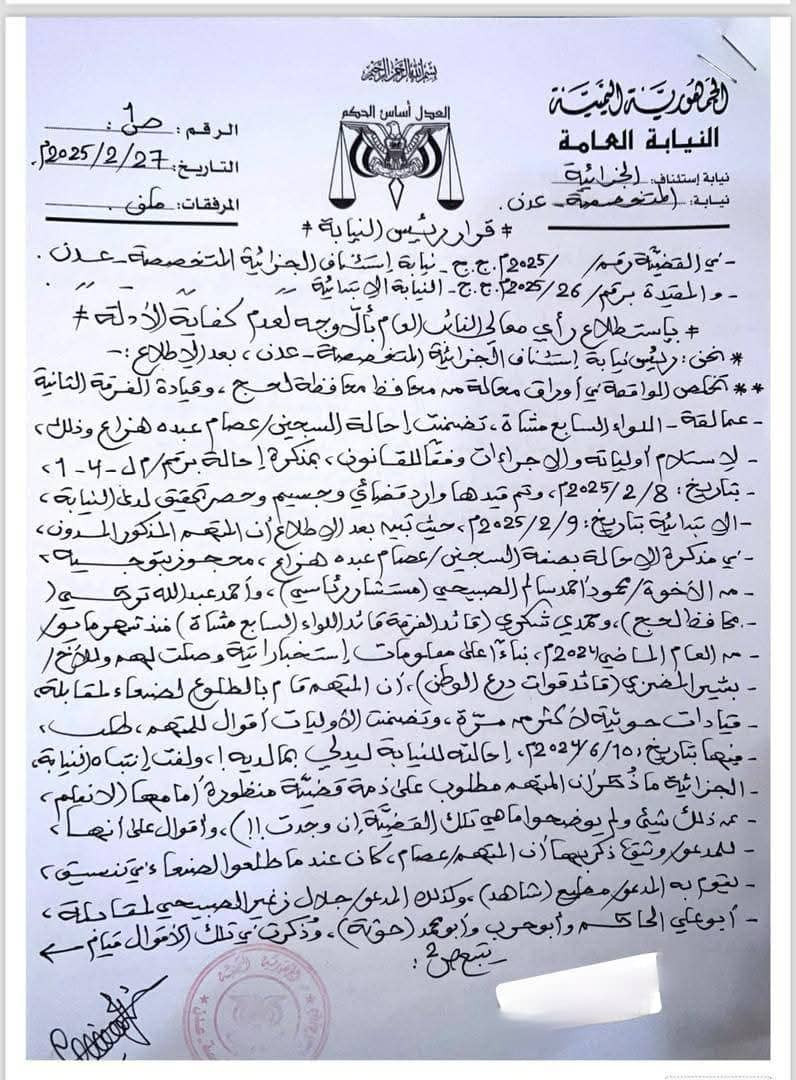 بسم الله الرحمن الرحيم
الجمهورية اليمنية
النيابة العامة
نيابة إستئناف: الجزائية
نيابة: المتخصصة - عدن.
العدل أساس الحكم
الرقم: ص1
التاريخ: 2025/2/27م.
المرفقات: ملف.
* قرار رئيس النيابة *
- في القضية رقم/ /2025م ج.ج - نيابة إستئناف الجزائية المتخصصة - عدن.
- والمقيدة برقم/26/2025م ج.ج - النيابة الابتدائية
* بإستطلاع رأي معالي النائب العام بألاوجه لعدم كفاية الأدلة *
* نحن: رئيس نيابة إستئناف الجزائية المتخصصة - عدن، بعد الإطلاع:-
** تتخلص الواقعة في أوراق محالة من محافظ محافظة لحج، وقيادة الفرقة الثانية
عمالقة - اللواء السابع مشاة، تضمنت إحالة السجين/عصام عبده هزاع وذلك،
- لإستلام أولياته والإجراءات وفقاً للقانون، بمذكرة إحالة برقم/م ل-4-1،
- بتاريخ: 2025/2/8م، وتم قيدها وارد قضائي وجسيم وحصر تحقيق لدى النيابة،
- الابتدائية بتاريخ: 2025/2/9م، حيث تبيه بعد الإطلاع أن المتهم المذكور المدون،
- في مذكرة الإحالة بصفة السجين/عصام عبده هزاع، محجوز بتوجيه
- من الأخوة/محمود أحمد سالم الصبيحي (مستشار رئاسي)، وأحمد عبدالله تركي (
- محافظ لحج)، وحمدي شكري (قائد الفرقة قائد اللواء السابع مشاة) منذ شهر مايو/
- من العام الماضي 2024م، بناءً على معلومات إستخباراتية وصلت لهم وللأخ/
- بشير المضربي (قائد قوات درع الوطن)، أن المتهم قام بالطلوع لصنعاء لمقابلة
- قيادات حوثية لأكثر من مرة، وتضمنت الأوليات أقوال للمتهم، طلب،
- فيها بتاريخ: 2024/6/10م، إحالته للنيابة ليدلي بما لديه!، ولفت إنتباه النيابة،
- الجزائية ما ذُكر أن المتهم مطلوب على ذمة قضية منظورة أمامها (لانعلم،
- عن ذلك شيئ ولم يوضحوا ما هي تلك القضية إن وجدت!!)، وأقوال على أنها،
- للمدعو/وثيق ذكر بها أن المتهم/عصام، كان عندما طلعوا لصنعاء في تنسيق،
- يقوم به المدعو/مطيع (شاهد)، وكذلك المدعو/جلال زغير الصبيحي لمقابلة،
- أبو علي الحاكم وأبو حرب وأبو محمد (حوثة)، وذكرت في تلك الأقوال قيام ←
يتبع ص2: